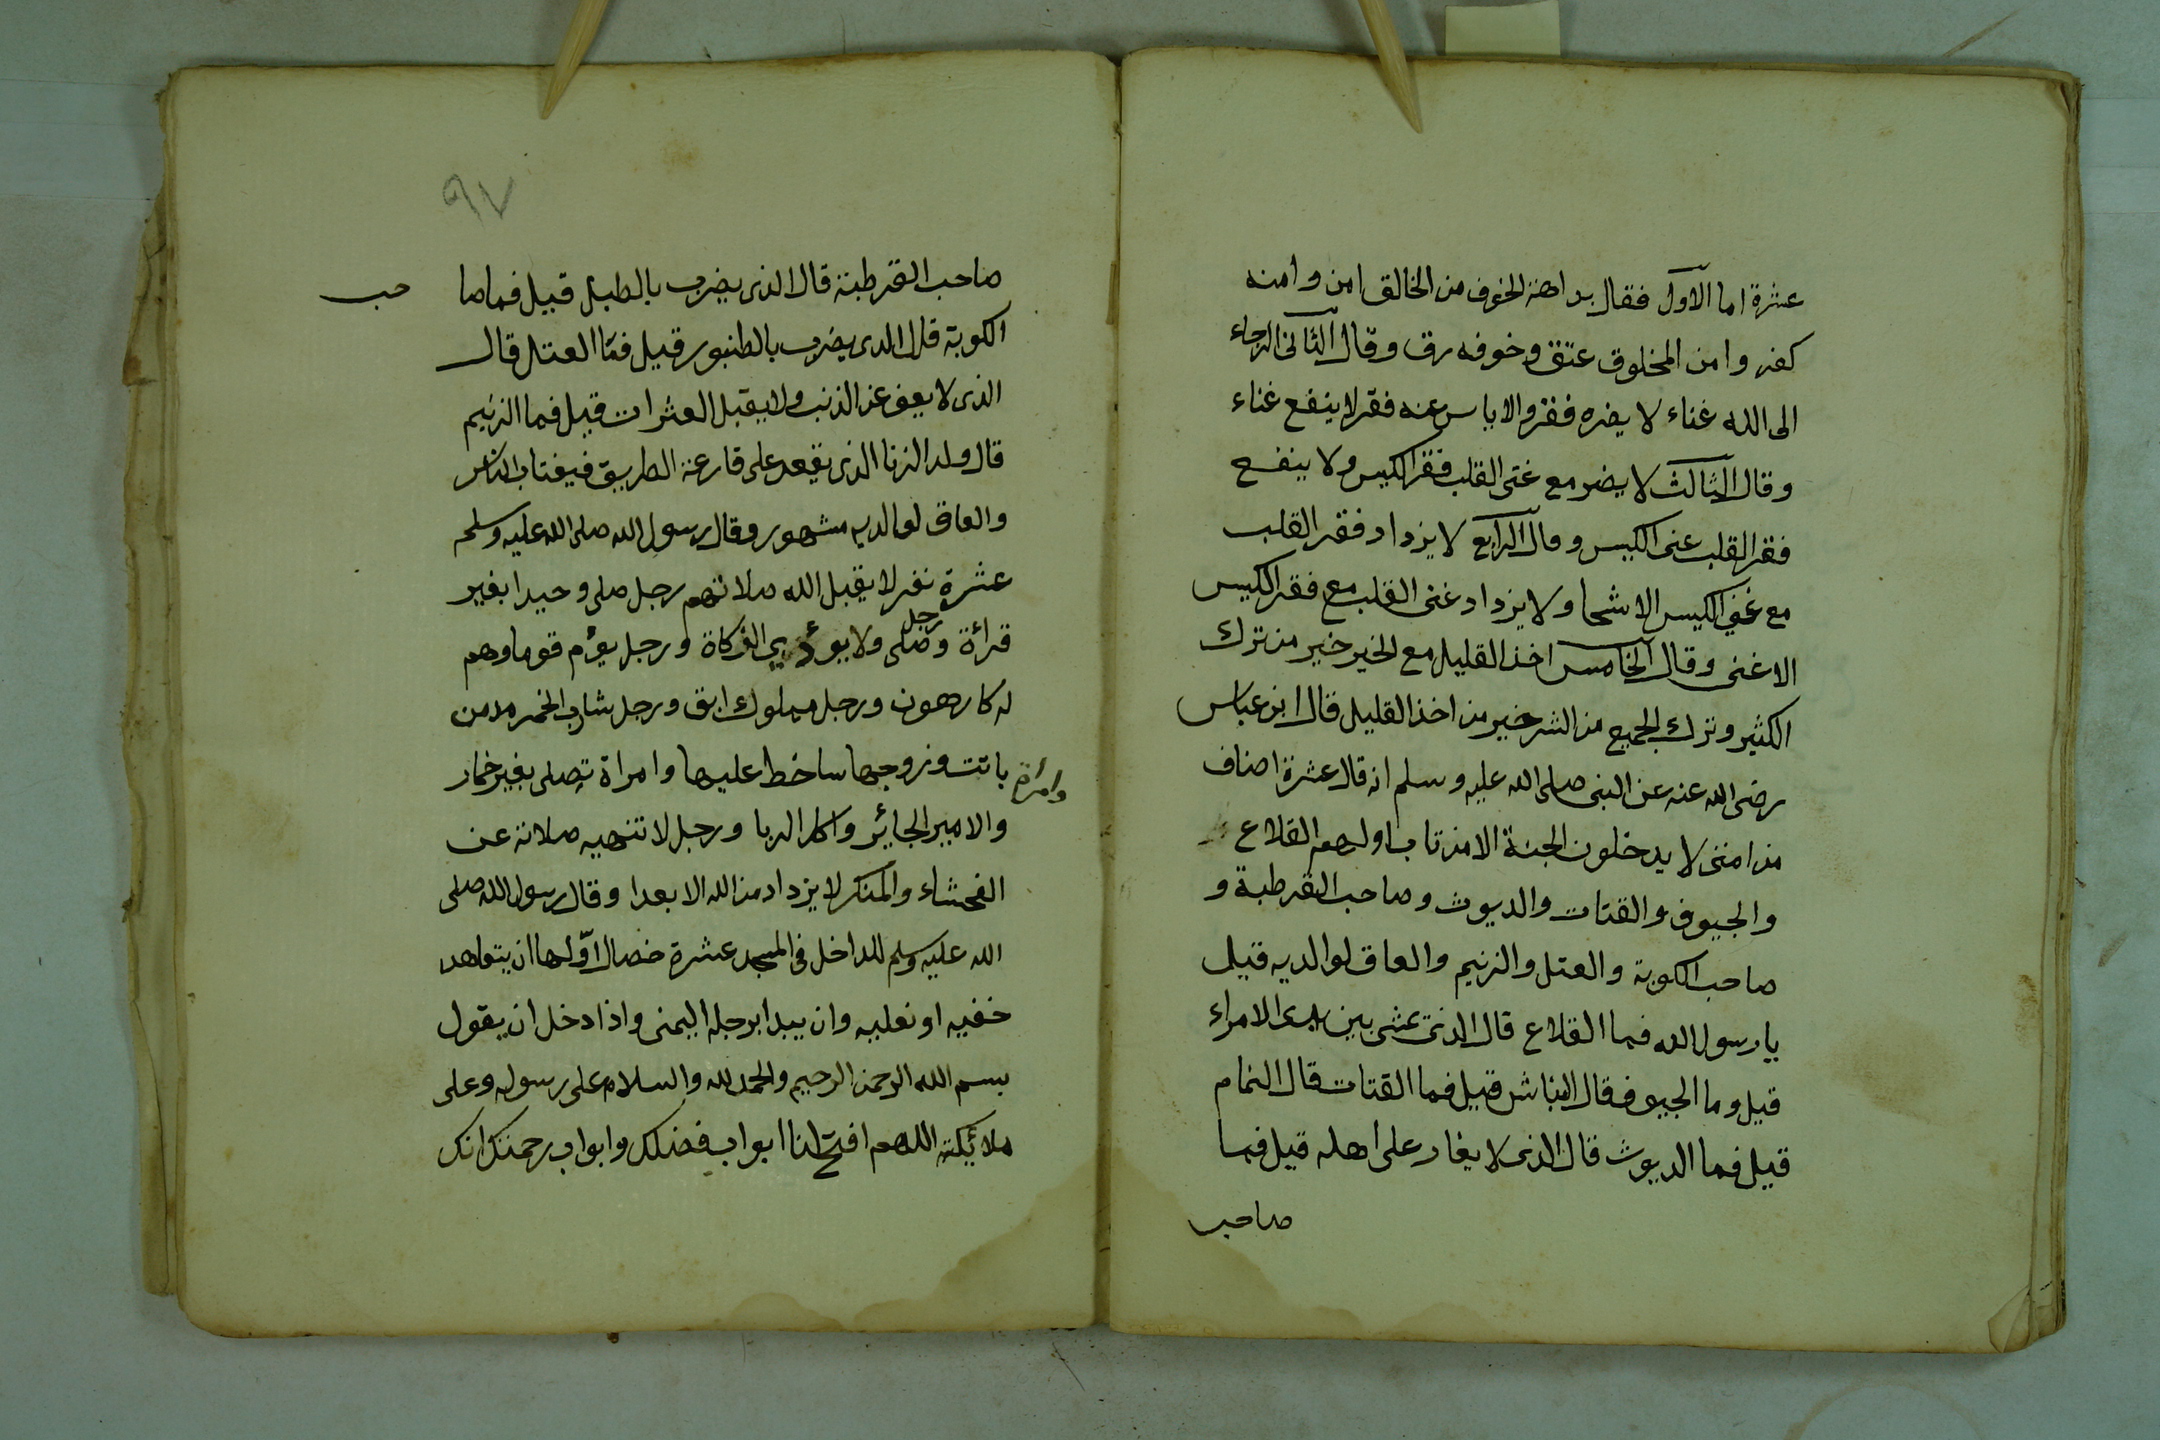 عشرة اما الاول فقال بداهة الخوف من الخالق امن وامنه
كفر وامن المخلوق عتق وخوفه رق وقال الثانى الرجاء
الى الله غناء لا يضره فقر والاياس عنه فقر لا ينفع غناء
وقال الثالث لا يضر مع غنى القلب فقر الكيس ولا ينفع
فقر القلب غنى الكيس وقال الرابع لا يزداد فقر القلب
مع غنى الكيس الا شحا ولا يزداد غنى القلب مع فقر الكيس
الا غنى وقال الخامس اخذ القليل مع الخير خير من ترك
الكثير وترك الجميع من الشر خير من اخذ القليل قال ابن عباس
رضى الله عنه عن النبى صلى الله عليه وسلم انه قال عشرة اصناف
من امتى لا يدخلون الجنة الا من تاب اولهم القلاع
والجيوف والقتات والديوث وصاحب القرطبة و
صاحب الكوبة والعتل والزنيم والعاق لوالديه قيل
يا رسول الله فما القلاع قال الذى يمشى بين يدى الامراء
قيل وما الجيوف قال النباش قيل فما القتات قال النمام
قيل فما الديوث قال الذى لا يغار على اهله قيل فما
صاحب
٩٧
صاحب القرطبة قال الذى يضرب بالطبل قيل فما صا حب
الكوبة قال الذى يضرب بالطنبور قيل فمّا العتل قال
الذى لا يعف عن الذنب ولا يقبل العثرات قيل فما الزنيم
قال ولد الزنا الذى يقعد على قارعة الطريق فيغتاب الناس
والعاق لوالديه مشهور وقال رسول الله صلى الله عليه وسلم
عشرة نفر لا يقبل الله صلاتهم رجل صلى وحيدا بغير
قرائة ورجل صلى ولا يؤدي الزكاة ورجل يؤم قوما وهم
له كارهون ورجل مملوك ابق ورجل شارب الخمر مدمن
وامرأة باتت وزوجها ساخط عليها وامراة تصلى بغير خمار
والامير الجائر واكل الربا ورجل لا تنهيه صلاته عن
الفحشاء والمنكر لا يزداد من الله الا بعدا وقال رسول الله صلى
الله عليه وسلم للداخل فى المسجد عشرة خصال اوّلها ان يتعاهد
خفيه او نعليه وان يبدا برجله اليمنى واذا دخل ان يقول
بسم الله الرحمن الرحيم والحمد لله والسلام على رسوله وعلى
ملائكته اللهم افتح لنا ابواب فضلك وابواب رحمتك انك